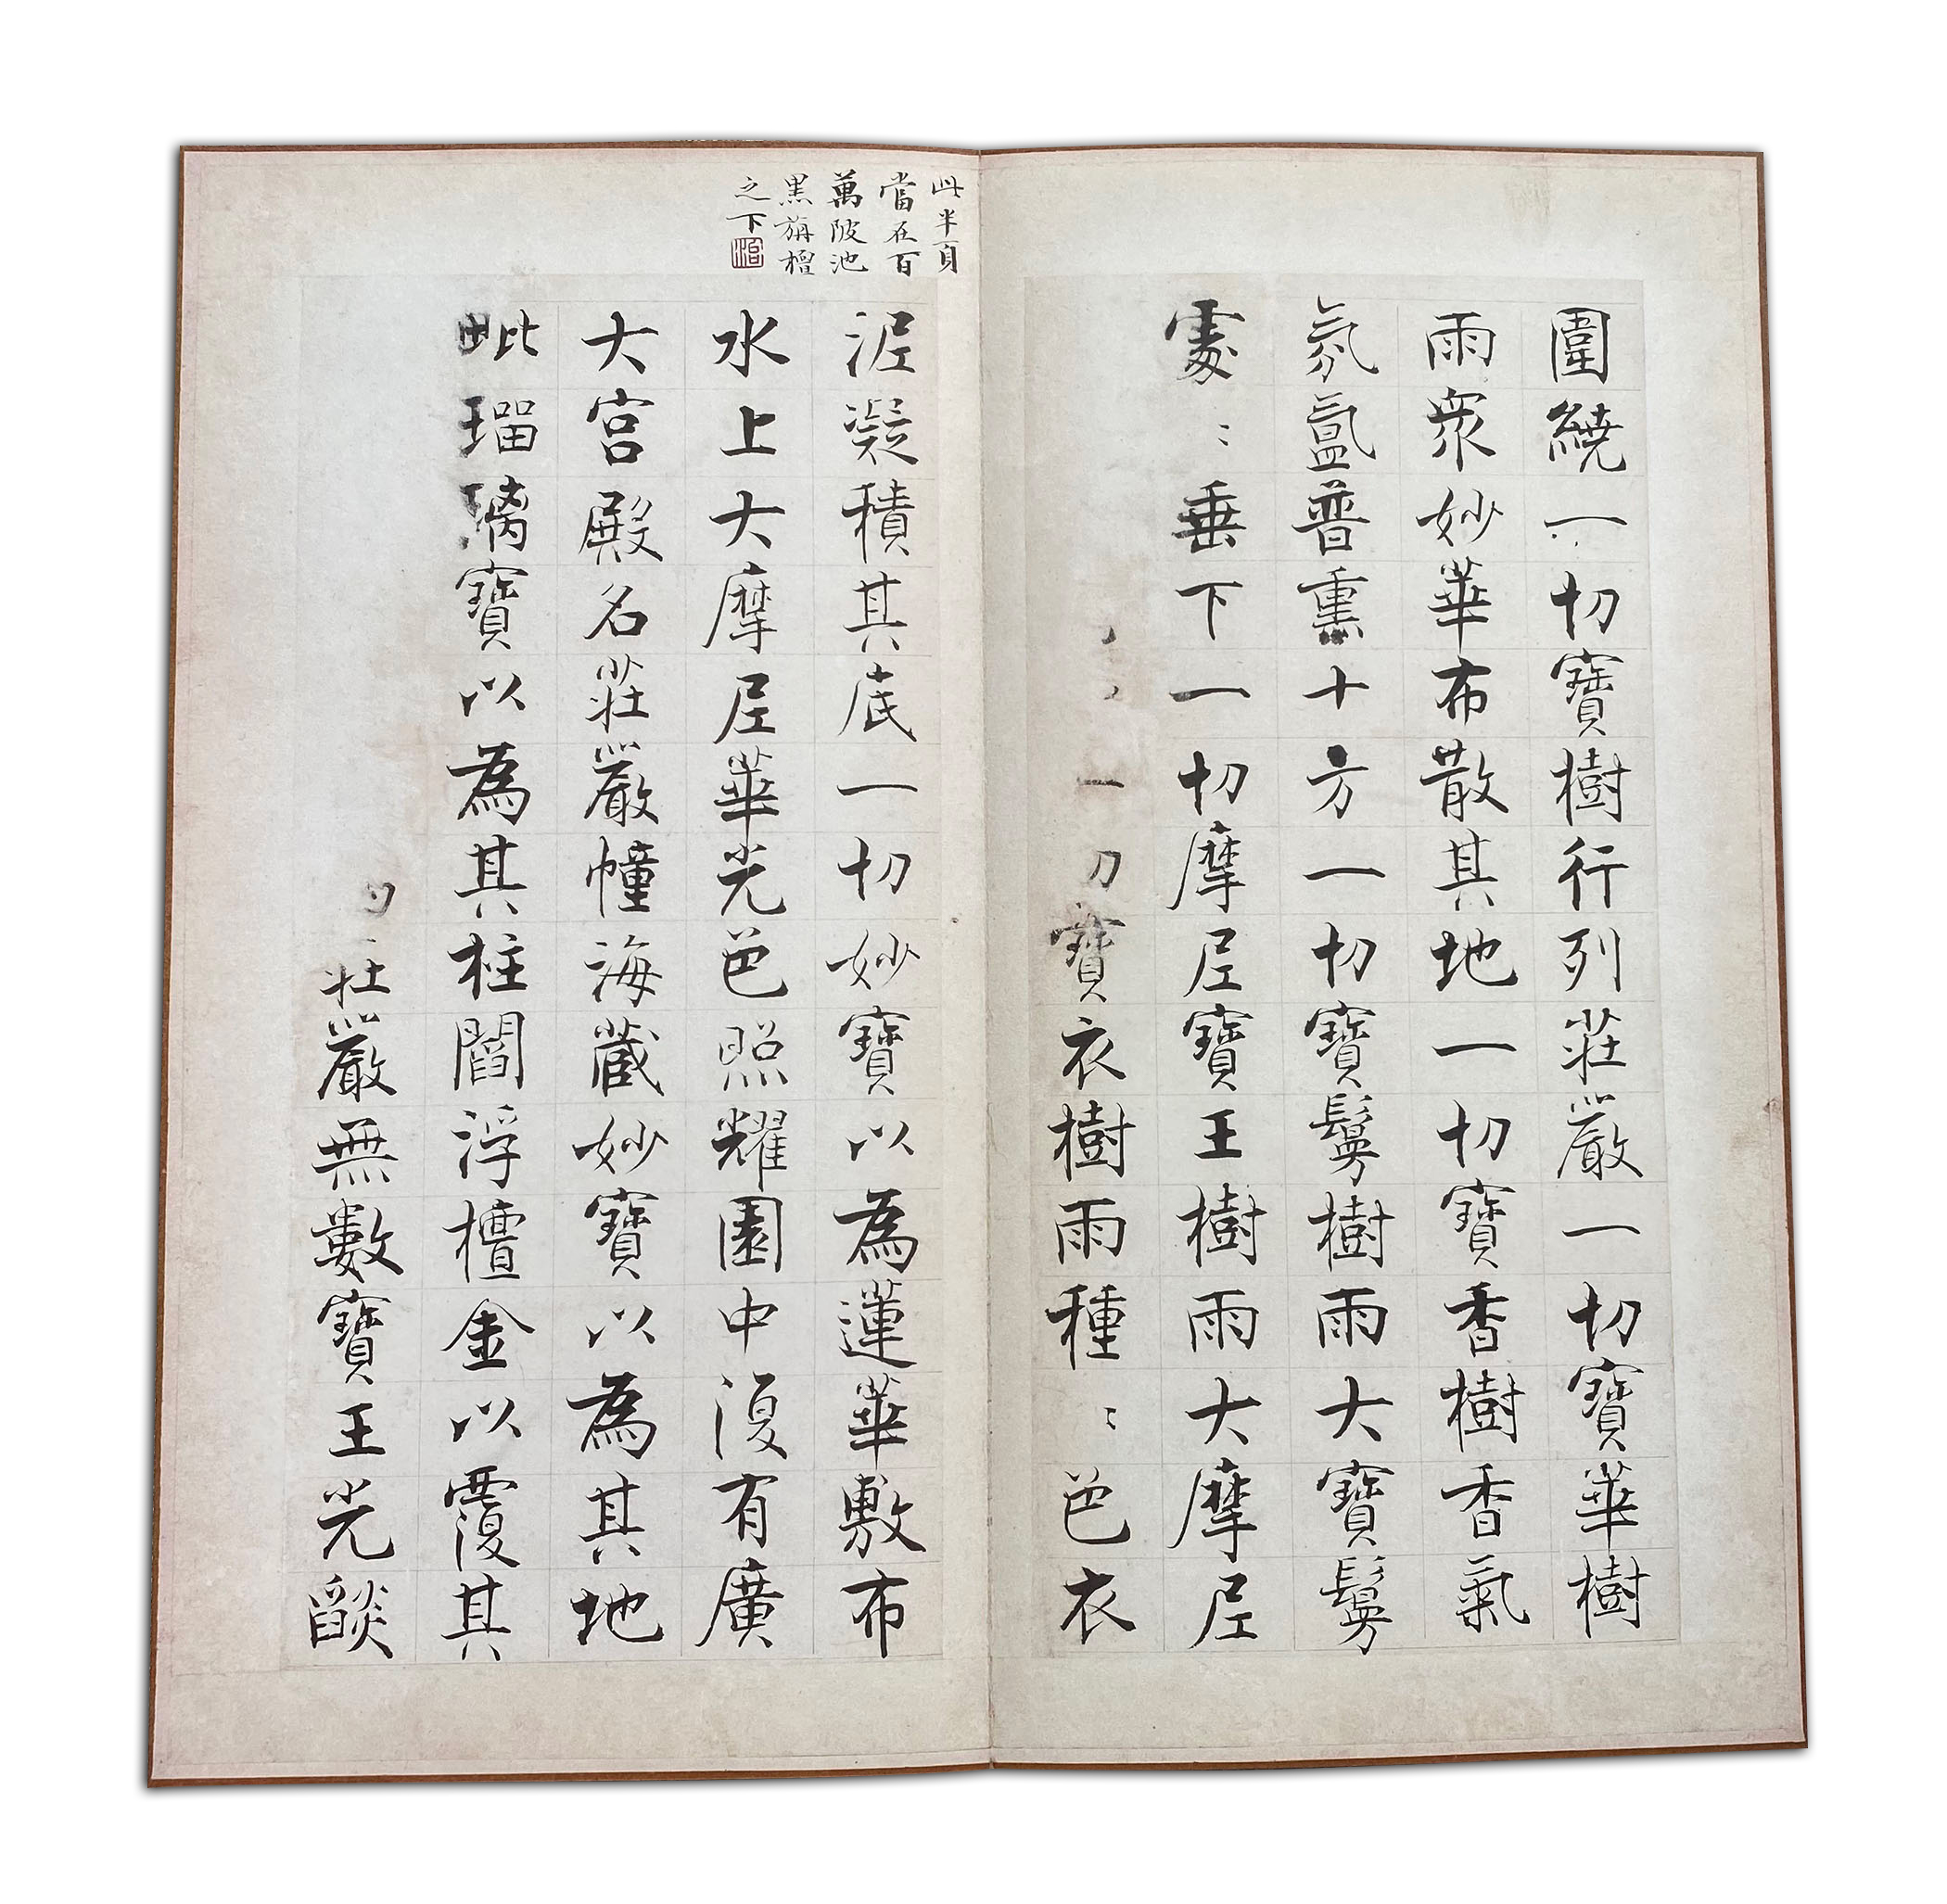 圍繞一切寶樹行列莊嚴一切寶華樹
雨衆妙華布散其地一切寶香樹香氣
氛氳普熏十方一切寶鬘樹雨大寶鬘
處〻垂下一切摩尼寶王樹雨大摩尼
一切寶衣樹雨種〻色衣
此半頁
當在百
萬陂池
黒旃檀
之下
泥凝積其底一切妙寶以為蓮華敷布
水上大摩尼華光色照耀園中復有廣
大宮殿名莊嚴幢海藏妙寶以為其地
毗瑠璃寶以為其柱閻浮檀金以覆其
莊嚴無數寶王光𦦨